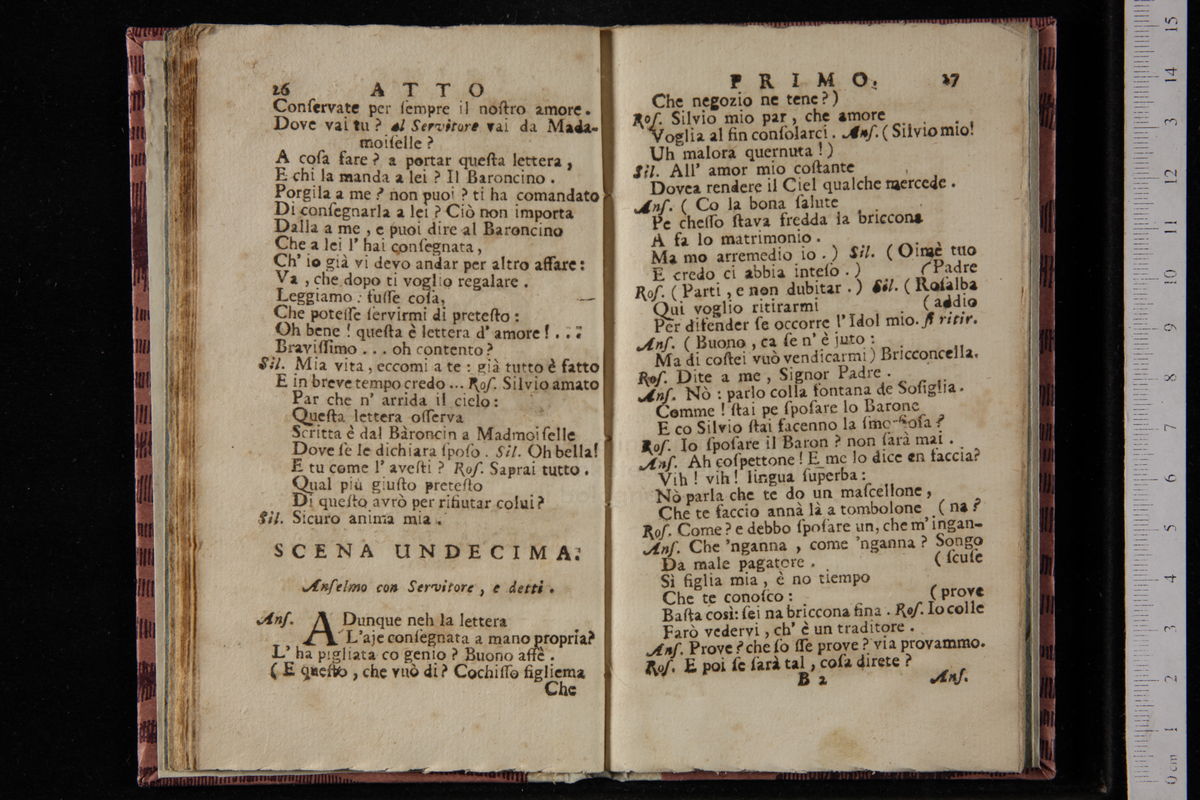 26 ATTO
Conſervate per ſempre il noſtro amore.
Dove vai tu? al Servitore vai da Mada-
moiſelle?
A coſa fare? a portar queſta lettera,
E chi la manda a lei? Il Baroncino.
Porgila a me? non puoi? ti ha comandato
Di conſegnarla a lei? Ciò non importa
Dalla a me, e puoi dire al Baroncino
Che a lei l' hai conſegnata,
Ch' io già vi devo andar per altro affare:
Va, che dopo ti voglio regalare.
Leggiamo: fuſſe coſa,
Che poteſſe ſervirmi di preteſto:
Oh bene! queſta è lettera d' amore! ...
Braviſſimo ... oh contento?
Sil. Mia vita, eccomi a te: già tutto è fatto
E in breve tempo credo ... Roſ. Silvio amato
Par che n' arrida il cielo:
Queſta lettera oſſerva
Scritta è dal Baroncin a Madmoiſelle
Dove ſe le dichiara ſpoſo. Sil. Oh bella!
E tu come l' aveſti? Roſ. Saprai tutto.
Qual più giuſto preteſto
Di queſto avrò per rifiutar colui?
Sil. Sicuro anima mia.
SCENA UNDECIMA.
Anſelmo con Servitore, e detti.
Anſ. ADunque neh la lettera
L'aje conſegnata a mano propria?
L' ha pigliata co genio? Buono affè.
(E queſto, che vuò di? Cochiſſo figliema
Che
PRIMO. 27
Che negozio ne tene?)
Roſ. Silvio mio par, che amore
Voglia al fin conſolarci. Anſ. (Silvio mio!
Uh malora quernuta!)
Sil. All' amor mio coſtante
Dovea rendere il Ciel qualche mercede.
Anſ. (Co la bona ſalute
Pe cheſſo ſtava fredda la briccona
A fa lo matrimonio.
Ma mo arremedio io.) Sil. (Oimè tuo
E credo ci abbia inteſo.) (Padre
Roſ. (Parti, e non dubitar.) Sil. (Roſalba
Qui voglio ritirarmi (addio
Per difender ſe occorre l' Idol mio. ſi ritir.
Anſ. (Buono, ca ſe n' è juto:
Ma di coſtei vuò vendicarmi) Bricconcella.
Roſ. Dite a me, Signor Padre.
Anſ. Nò: parlo colla fontana de Soſiglia.
Comme! ſtai pe ſpoſare lo Barone
E co Silvio ſtai facenno la ſmorfioſa?
Roſ. Io ſpoſare il Baron? non ſarà mai.
Anſ. Ah coſpettone! E me lo dice en faccia?
Vih! vih! lingua ſuperba:
Nò parla che te do un maſcellone,
Che te faccio annà là a tombolone (na?
Roſ. Come? e debbo ſpoſare un, che m' ingan-
Anſ. Che 'nganna, come 'nganna? Songo
Da male pagatore. (ſcuſe
Sì figlia mia, è no tiempo
Che te conoſco: (prove
Baſta così: ſei na briccona fina. Roſ. Io colle
Farò vedervi, ch' è un traditore.
Anſ. Prove? che ſo ſſe prove? via provammo.
Roſ. E poi ſe ſarà tal, coſa direte?
B 2 Anſ.
0 cm 1 2 3 4 5 6 7 8 9 10 11 12 13 14 15